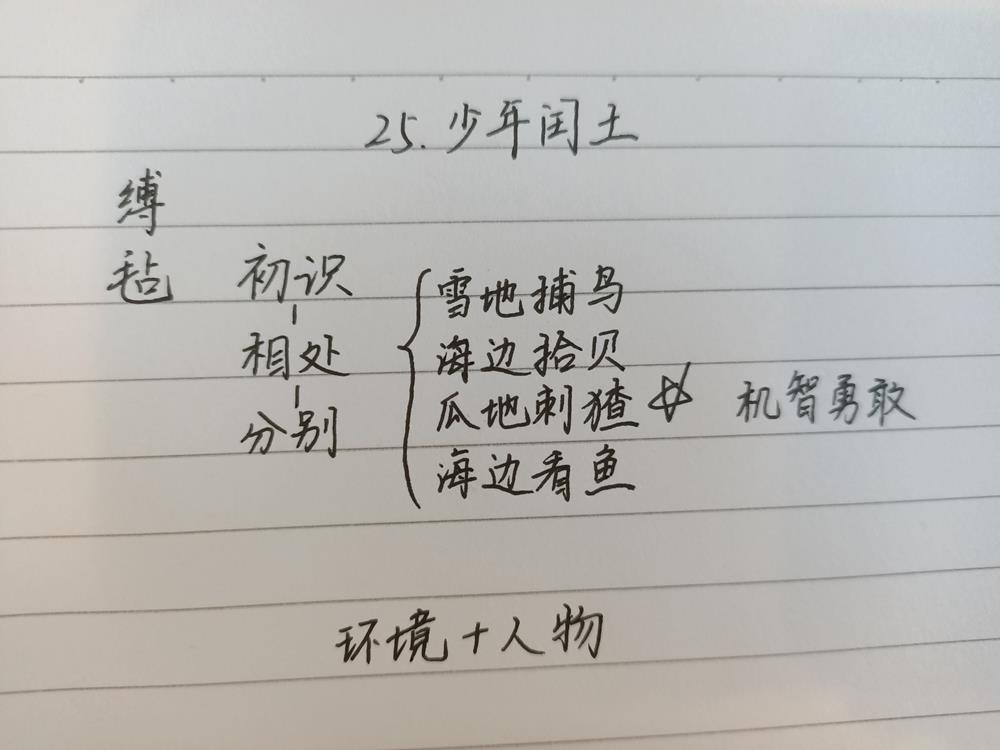 25.少年闰土
缚
毡
初识
相处
分别
雪地捕鸟
海边拾贝
瓜地刺猹 机智勇敢
海边看鱼
环境+人物